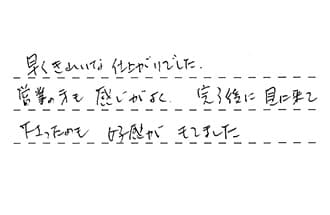 早くきれいな仕上がりでした.
営業の方も 感じがよく. 完了後に 見に来て
下さったのも 好感が もてました